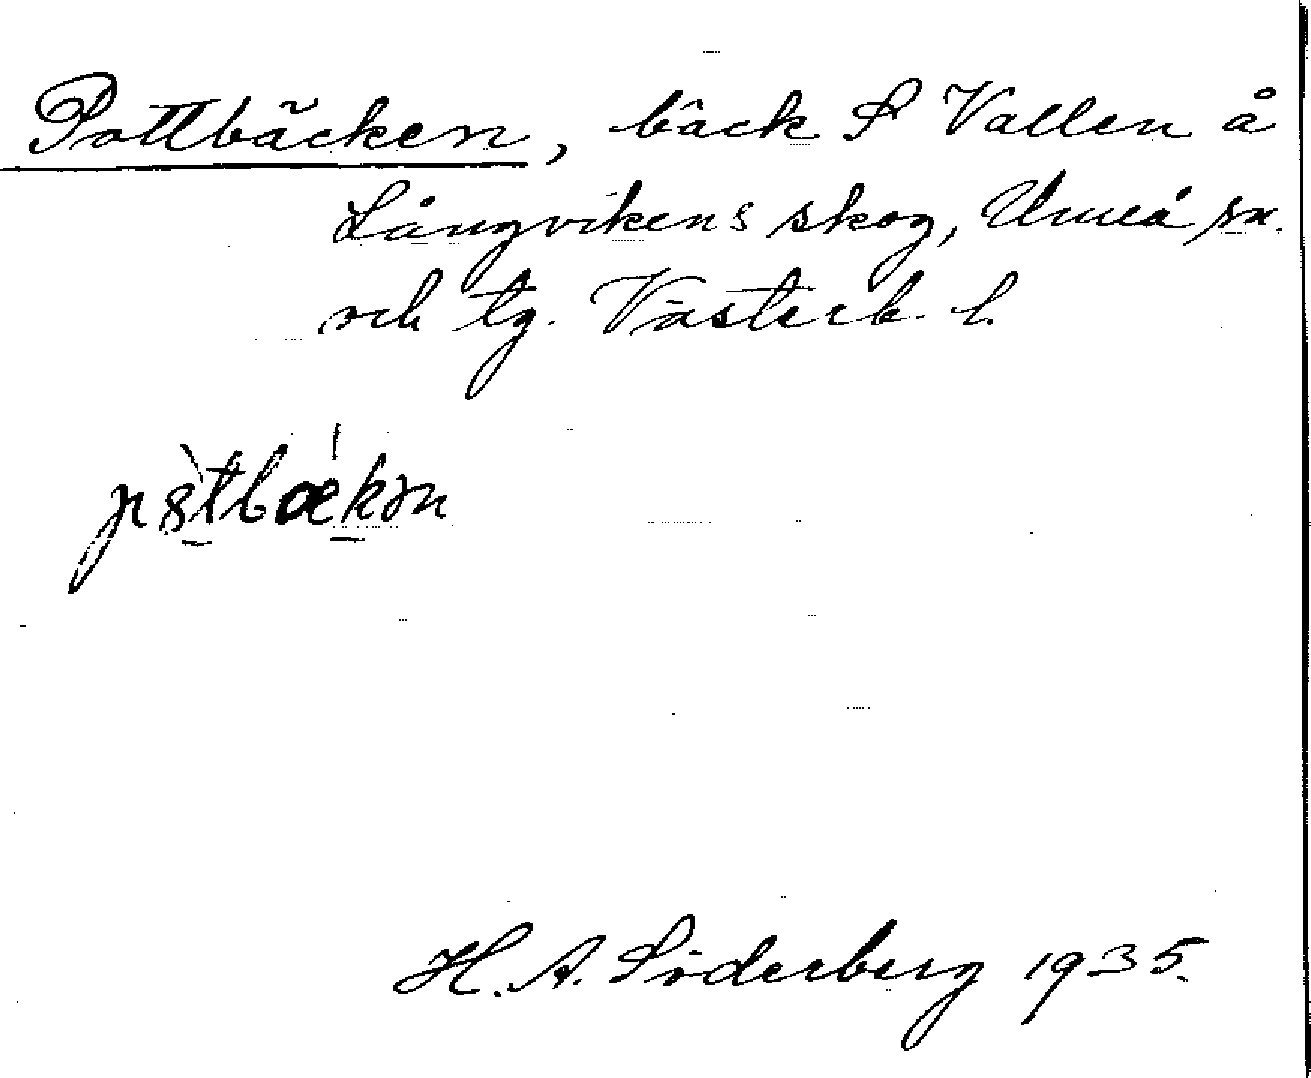 Pottbäcken, bäck S Vallen å
Långvikens skog, Umeå sn.
och tg. Västerb. l.
H. A. Söderberg 1935.